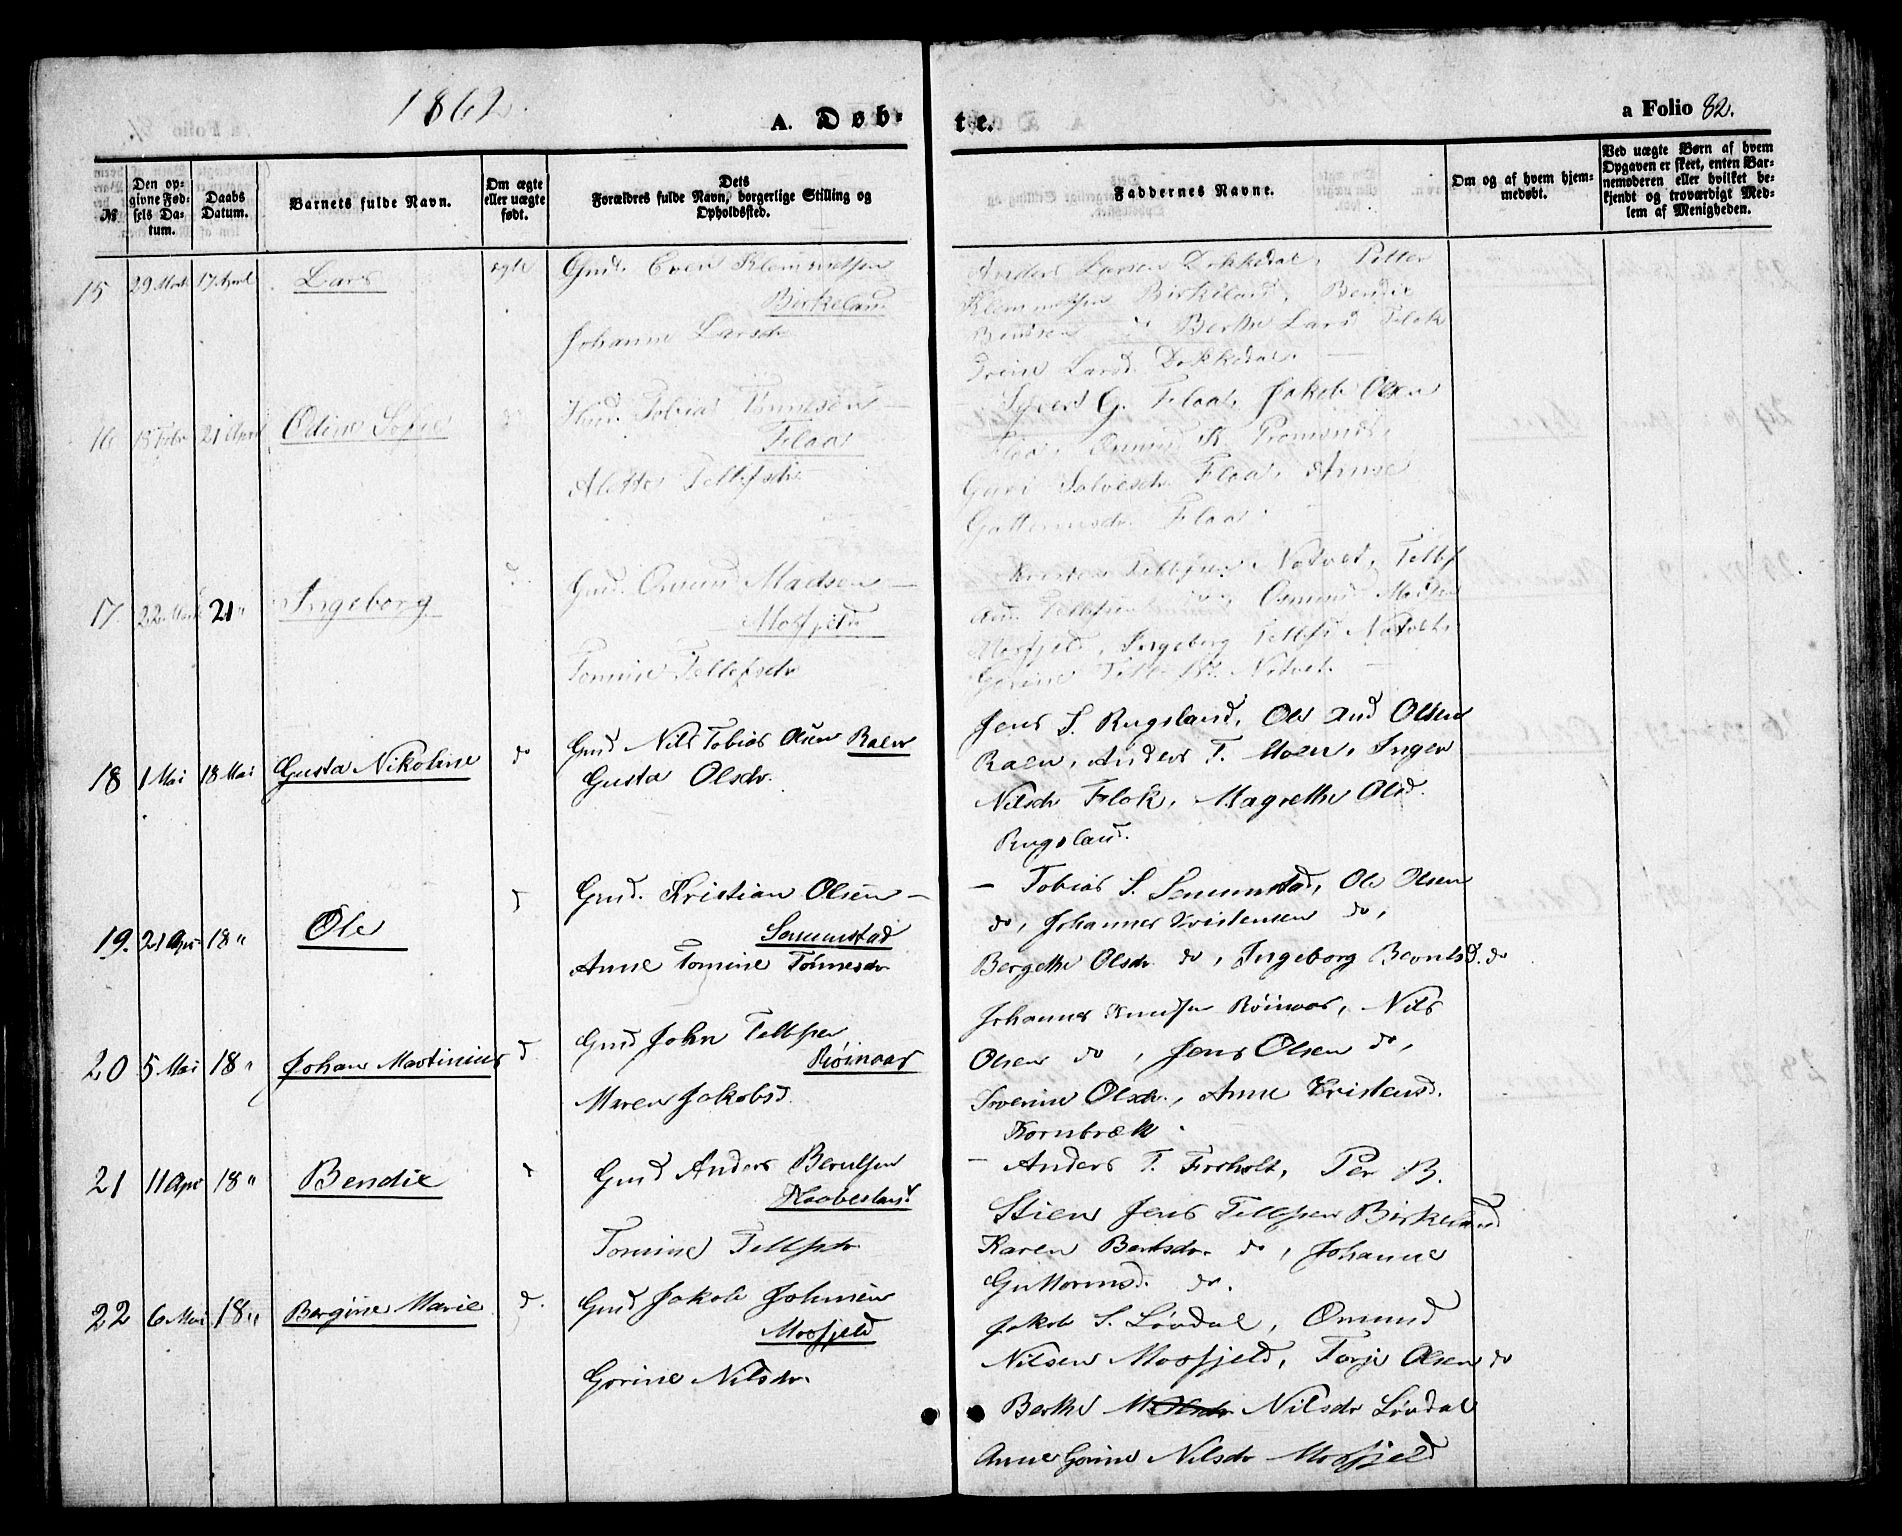 1862.
A. Døb-
te.
a Folio 82.
№
Den op-
givne Fød-
sels Da-
tum.
Daabs
Datum.
Barnets fulde Navn.
Om ægte
eller uægte
født.
Dets
Forældres fulde Navn, borgerlige Stilling og
Opholdssted.
Faddernes Navne.
Om og af hvem hjem-
medøbt.
Ved uægte Børn af hvem
Opgaven er skeet, enten Bar-
nemoderen eller hvilket be-
kjendt og troværdigt Med-
lem af Menigheden.
15 29 Marts 17 April Lars ægte
Gmd. Even Klemmetsen
Birkeland
Johanne Larsdr
Anders Larsen Dokkedal, Petter
Klemmetsen Birkeland, Bendix
Bendtsen Berthe Larsd Flak
Larsd. Dokkedal.
16 15 Febr 21 April Odine Sofie
Tobias Tønnesen
Flaa
Alette Tellefsdr
Syvert G. Flaa, Jakob Olsen
Flaa, Omund K.
Guri Salvesdr Flaa, Anne
Guttormsdr. Flaa.
17 22 Marts 21 " Ingeborg d.
Gmd. Omund Madsen
Mosfjeld
Tomine Tellefsdr
Kristen Tellefsen Natvet, Tellef
Tellefsen, Osmund Madsen
Mosfjeld, Ingeborg Tellefsd Natvet,
Gorine Tellefsd. Natvet.
18 1 Mai 18 Mai Gusta Nikoline do
Gmd Nils Tobias Olsen Raen
Gusta Olsdr.
Jens S. Rugsland, Ole And Olsen
Raen, Anders T. Moen, Inger
Nilsdr Flak, Magrethe Olsd.
Rugsland.
19. 21 Apr 18 " Ole d
Gmd. Kristian Olsen
Senumstad
Anne Tomine Tønnesdr
Tobias S. Senumstad, Ole Olsen
do, Johannes Kristensen do,
Bergethe Olsdr do, Ingeborg Berntsd. do
20 5 Mai 18 " Johan Martinius d
Gmd John Tellefsen
Røinaas
Maren Jakobsd.
Johannes Knudsen Røinaas, Nils
Olsen do, Jens Olsen do,
Severine Olsdr., Anne Kristensd.
Kornbræk.
21 11 Apr 18 " Bendix d
Gmd Anders Berulfsen
Haabesland
Tomine Tellefsdr
Anders T. Froholt, Per B.
Stien Jens Tellefsen Birkeland
Karen Bentsdr. do, Johanne
Guttormsd. do.
22 6 Mai 18 " Bergine Marie d.
Gmd Jakob Johnsen
Mosfjeld
Gorine Nilsdr.
Jakob S. Løvdal, Omund
Nilsen Mosfjeld, Torje Olsen do
Berthe M Olsdr Nilsdr Løvdal
Anne Gorine Nilsdr Mosfjeld